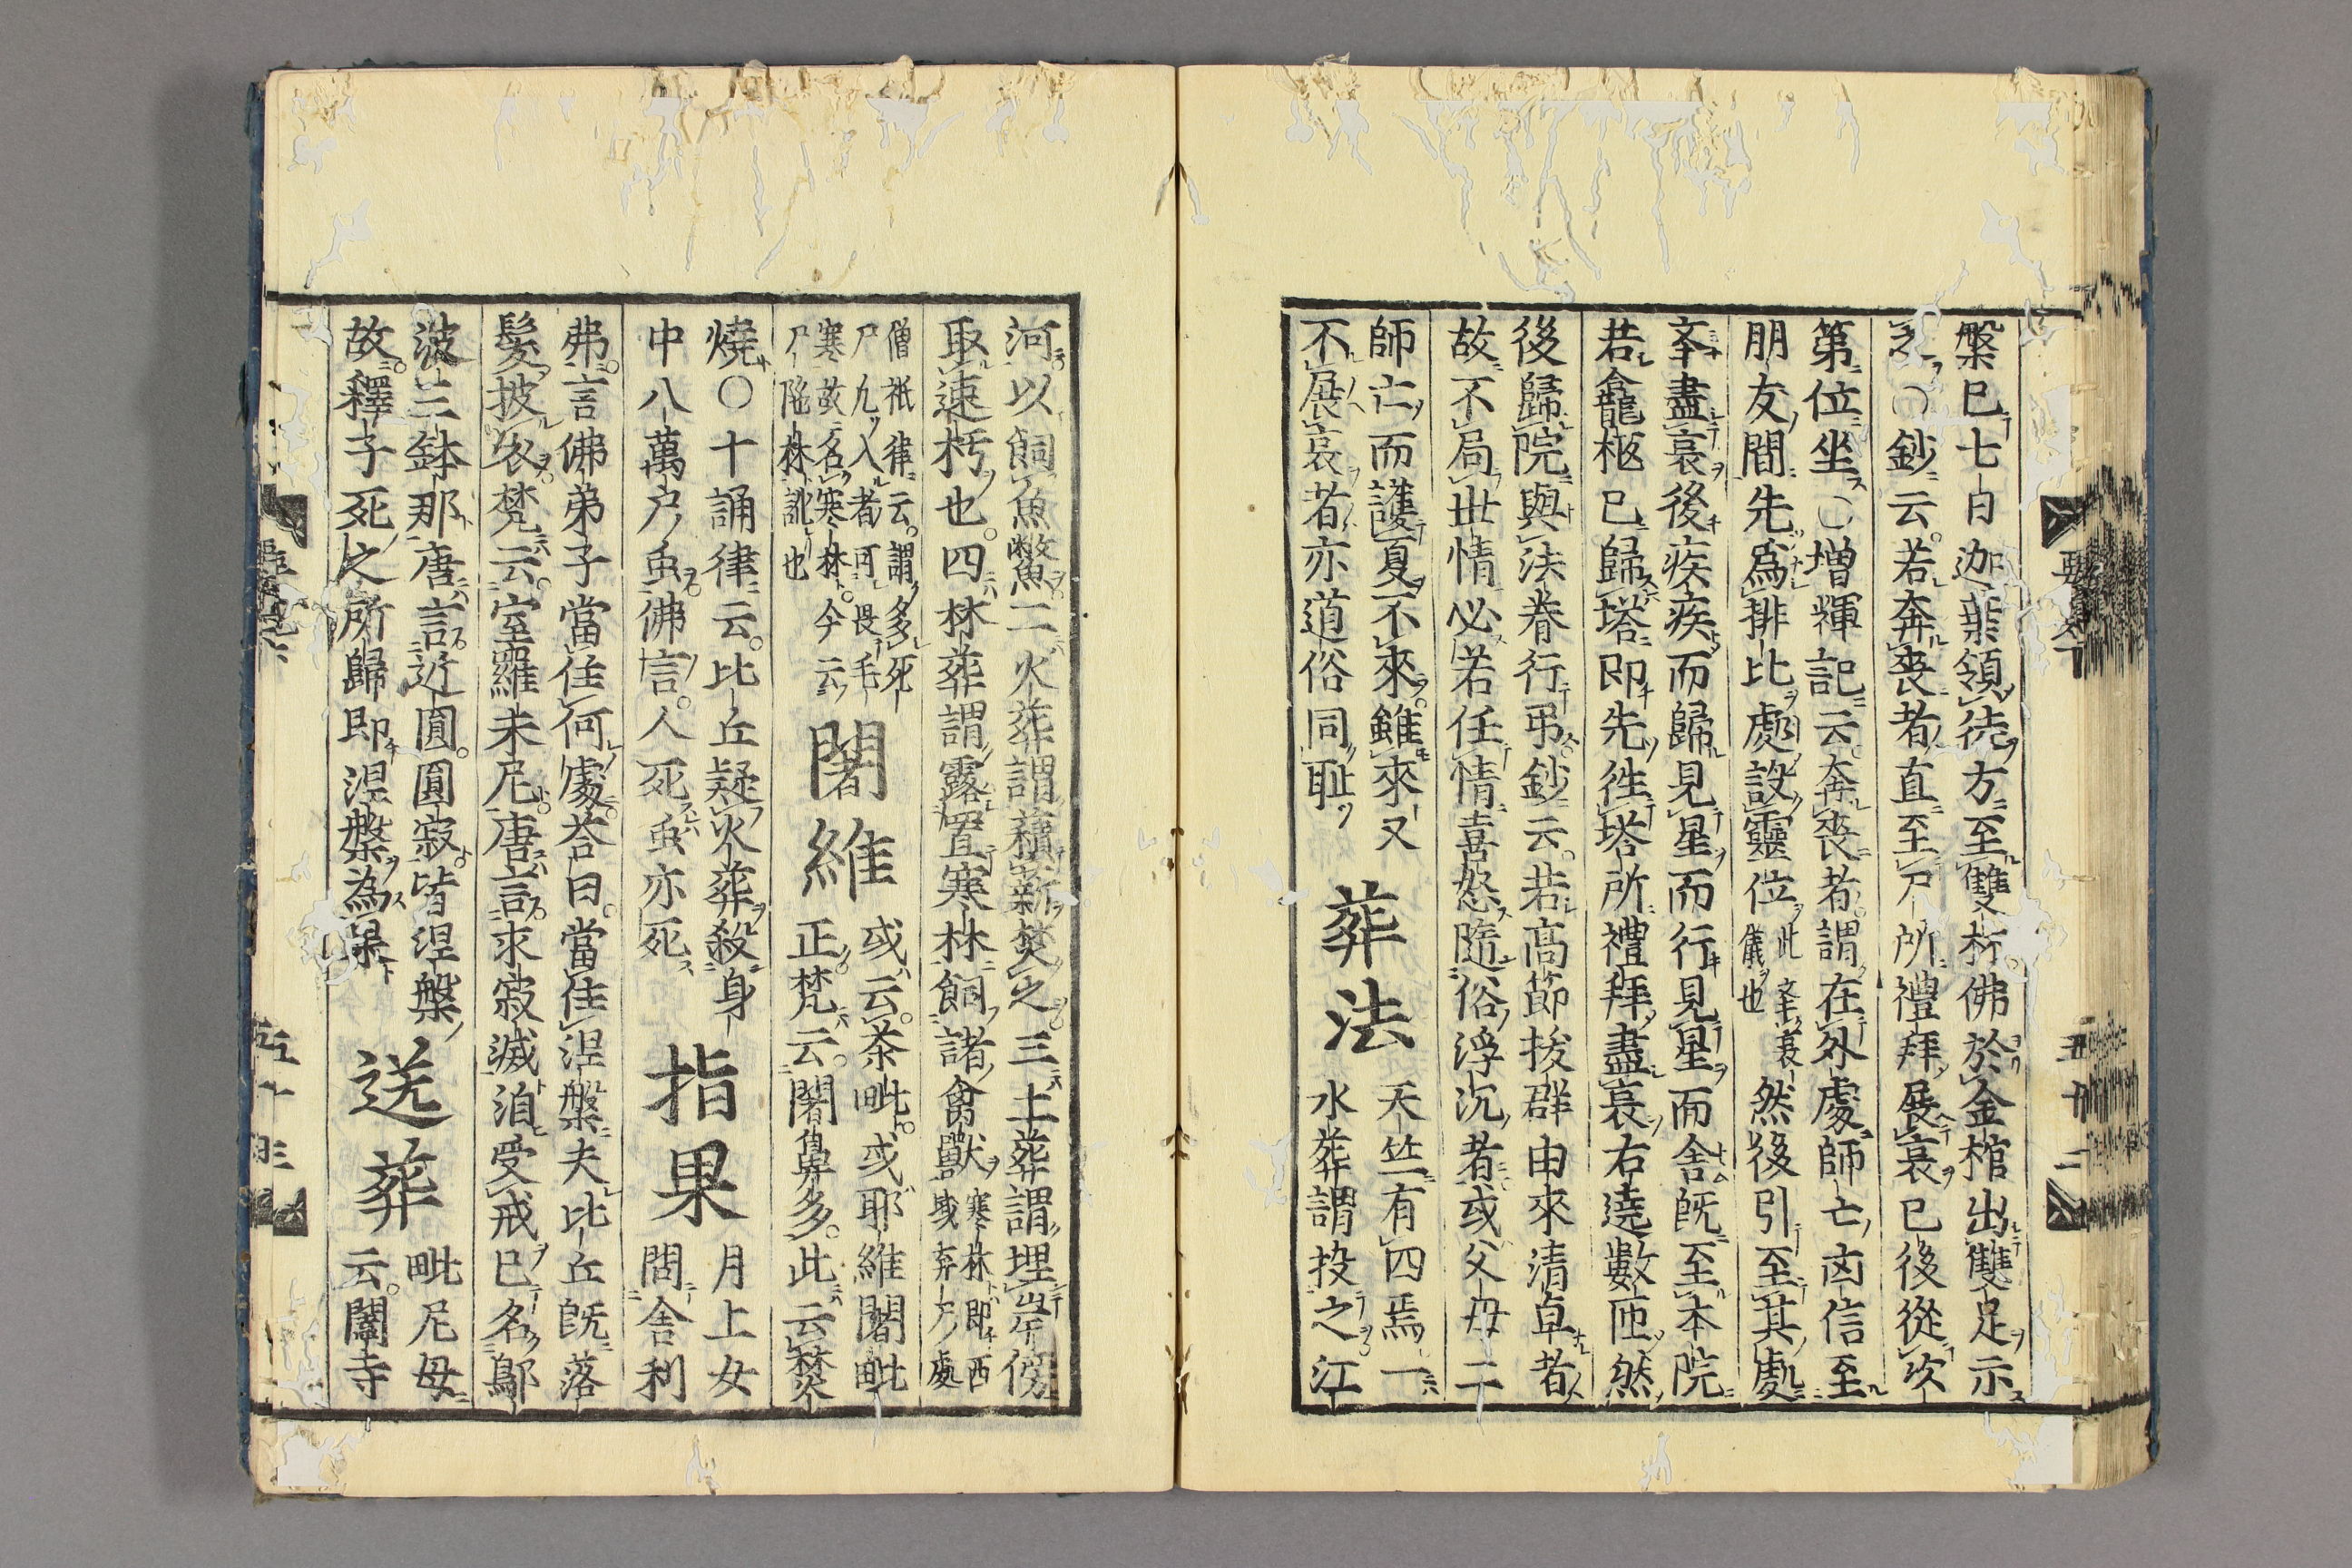 槃已七日迦葉領徒方至雙林佛於金棺出雙足示
之○鈔云若奔喪者直至尸所禮拜展哀已後從次
第位坐○增輝記云奔喪者謂在外處師亡凶信至
朋友間先為排比處設靈位此
儀也然後引至其處
盡哀後疾疾而歸見星而行見星而舍既至本院
若龕柩已歸塔即先往塔所禮拜盡哀右遶數匝然
後歸院與法眷行弔鈔云若高節拔群由來清卓者
故不局世情必若任情喜怒隨俗浮沉者或父母二
師亡而護夏不來雖來又
不展哀者亦道俗同恥
葬法
天竺有四焉一
水葬謂投之江
河以飼魚鱉二火葬謂積薪焚之三土葬謂埋岸傍
取速朽也四林葬謂露置寒林飼諸禽獸寒林即西
域棄尸處
僧祇律云謂多死
尸凡入者可畏毛
寒故名寒林今云
尸陀林訛也
闍維
或云茶毗或耶維闍毗
正梵云闍鼻多此云焚
燒○十誦律云比丘疑火葬殺身
中八萬戶虫佛言人死虫亦死
指果
月上女
問舍利
弗言佛弟子當住何處荅曰當住涅槃夫比丘既落
髮披衣梵云室羅末尼唐言求寂滅洎受戒已名鄔
波三鉢那唐言近圓圓寂皆涅槃
故釋子死之所歸即涅槃為果
送葬
毗尼母
云闍寺
要覽下
五十二
五十三